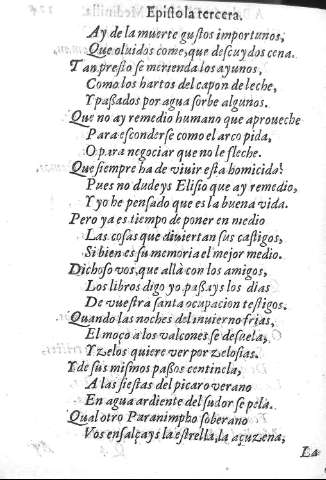 Epistola tercera.
Ay de la muerte gustos importunos,
Que oluidos come, que descuydos cena.
Tan presto se merienda los ayunos,
Como los hartos del capon de leche,
Y passados por agua sorbe algunos.
Que no ay remedio humano que aproueche
Para esconderse como el arco pida,
O para negociar que no le fleche.
Que siempre ha de viuir esta homicida?
Pues no dudeys Elisio que ay remedio,
Y yo he pensado que es la buena vida.
Pero ya es tiempo de poner en medio
Las cosas que diuiertan sus castigos,
Si bien es su memoria el mejor medio.
Dichoso vos, que allà con los amigos,
Los libros digo yo, passays los dias
De vuestra santa ocupacion testigos.
Quando las noches del inuierno frias,
El moço a los valcones se desuela,
Y zelos quiere ver por zelosias.
Y de sus mismos passos centinela,
A las siestas del picaro verano
En agua ardiente del sudor se pela.
Qual otro Paranimpho soberano
Vos ensalçays la estrella, la açuzena,
La